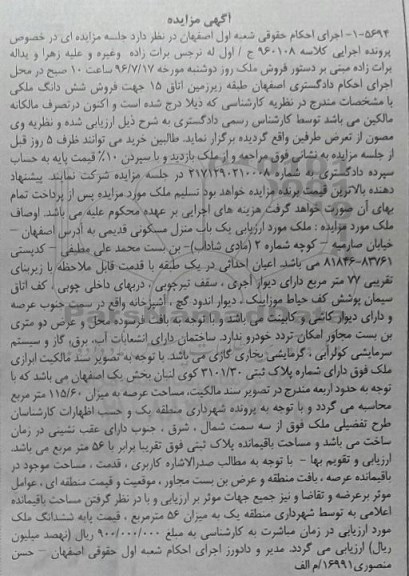 آگهی مزایده
۱-۵۶۹۴- اجرای احکام حقوقی شعبه اول اصفهان در نظر دارد جلسه مزایده ای در خصوص
پرونده اجرایی کلاسه ۹۶۰۱۰۸ ج / اول له نرجس برات زاده وغیره و علیه زهرا و یداله
برات زاده مبنی بر دستور فروش ملک روز دوشنبه مورخه ۹۶/۷/۱۷ ساعت ۱۰ صبح در محل
اجرای احکام دادگستری اصفهان طبقه زیرزمین اتاق ۱۵ جهت فروش شش دانگ ملکی
با مشخصات مندرج در نظریه کارشناسی که ذیلا درج شده است و اکنون درتصرف مالکانه
مالکین می باشد توسط کارشناس رسمی دادگستری به شرح ذیل ارزیابی شده و نظریه وی
مصون از تعرض طرفین واقع گردیده برگزار نماید. طالبین خرید می توانند ظرف ۵ روز قبل
از جلسه مزایده به نشانی فوق مراجعه و از ملک بازدید و با سپردن ۱۰٪ قیمت پایه به حساب
سپرده دادگستری به شماره ۲۱۷۱۲۹۰۲۱۰۰۰۸ در جلسه مزایده شرکت نمایند. پیشنهاد
دهنده بالاترین قیمت برنده مزایده خواهد بود تسلیم ملک مورد مزایده پس از پرداخت تمام
بهای آن صورت خواهد گرفت هزینه های اجرایی بر عهده محکوم علیه می باشد. اوصاف
ملک مورد مزایده : ملک مورد ارزیابی یک باب منزل مسکونی قدیمی به آدرس اصفهان –
خیابان صارمیه – کوچه شماره ۲ (مادی شاداب)– بن بست محمد علی – کدپستی
۸۳۷۶۱-۸۱۸۴۶ می باشد. اعیان احداثی در یک طبقه با قدمت قابل ملاحظه با زیربنای
تقریبی ۷۷ متر مربع دارای دیوار آجری ، سقف تیرچوبی ، دربهای داخلی چوبی ، کف اتاق
سیمان پوشش کف حیاط موزاییک ، دیوار اندود گچ ، آشپزخانه واقع در سمت جنوب عرصه
و دارای دیوار کاشی و کابینت می باشد و با توجه به بافت فرسوده محل و عرض دو متری
بن بست مجاور امکان تردد خودرو ندارد. ساختمان دارای انشعابات آب، برق، گاز و سیستم
سرمایشی کولرآبی ، گرمایشی بخاری گازی می باشد. با توجه به تصویر سند مالکیت ابرازی
ملک فوق دارای شماره پلاک ثبتی ۳۱۰۱/۳۰ کوی لنبان بخش یک اصفهان می باشد که با
توجه به حدود اربعه مندرج در تصویر سند مالکیت، مساحت عرصه به میزان ۱۱۵/۶۰ متر مربع
محاسبه می گردد و با توجه به پرونده شهرداری منطقه یک و حسب اظهارات کارشناسان
طرح تفضیلی ملک فوق از سه سمت شمال ، شرق ، جنوب دارای عقب نشینی در زمان
ساخت می باشد و مساحت باقیمانده پلاک ثبتی فوق تقریبا برابر با ۵۶ متر مربع می باشد.
ارزیابی و تقویم بها – با توجه به مطالب صدرالاشاره کاربری ، قدمت ، مساحت موجود در
باقیمانده عرصه ، بافت منطقه و عرض بن بست مجاور ، موقعیت و قیمت منطقه ای ، عوامل
موثر برعرضه و تقاضا و نیز جمیع جهات موثر بر ارزیابی و با در نظر گرفتن مساحت باقیمانده
اعلامی به توسط شهرداری منطقه یک به میزان ۵۶ مترمربع ، قیمت پایه ششدانگ ملک
مورد ارزیابی در زمان مباشرت به کارشناسی به مبلغ ۹۰۰/۰۰۰/۰۰۰ ریال (نهصد میلیون
ریال) ارزیابی می گردد. مدیر و دادورز اجرای احکام شعبه اول حقوقی اصفهان – حسن
منصوری۱۶۹۹۱/م الف